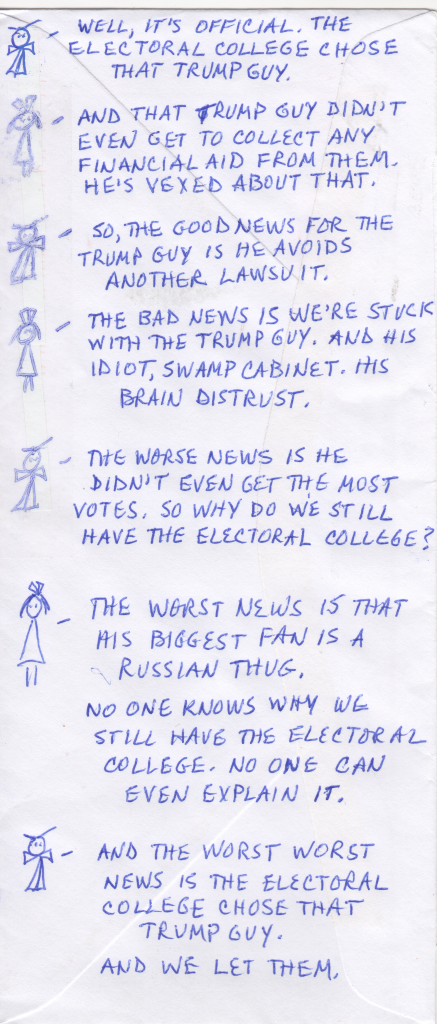 - WELL, IT'S OFFICIAL. THE
ELECTORAL COLLEGE CHOSE
THAT TRUMP GUY.
- AND THAT TRUMP GUY DIDN'T
EVEN GET TO COLLECT ANY
FINANCIAL AID FROM THEM.
HE'S VEXED ABOUT THAT.
- SO, THE GOOD NEWS FOR THE
TRUMP GUY IS HE AVOIDS
ANOTHER LAWSUIT.
- THE BAD NEWS IS WE'RE STUCK
WITH THE TRUMP GUY. AND HIS
IDIOT, SWAMP CABINET. HIS
BRAIN DISTRUST.
- THE WORSE NEWS IS HE
DIDN'T EVEN GET THE MOST
VOTES. SO WHY DO WE STILL
HAVE THE ELECTORAL COLLEGE?
- THE WORST NEWS IS THAT
HIS BIGGEST FAN IS A
RUSSIAN THUG.
NO ONE KNOWS WHY WE
STILL HAVE THE ELECTORAL
COLLEGE. NO ONE CAN
EVEN EXPLAIN IT.
- AND THE WORST WORST
NEWS IS THE ELECTORAL
COLLEGE CHOSE THAT
TRUMP GUY.
AND WE LET THEM.